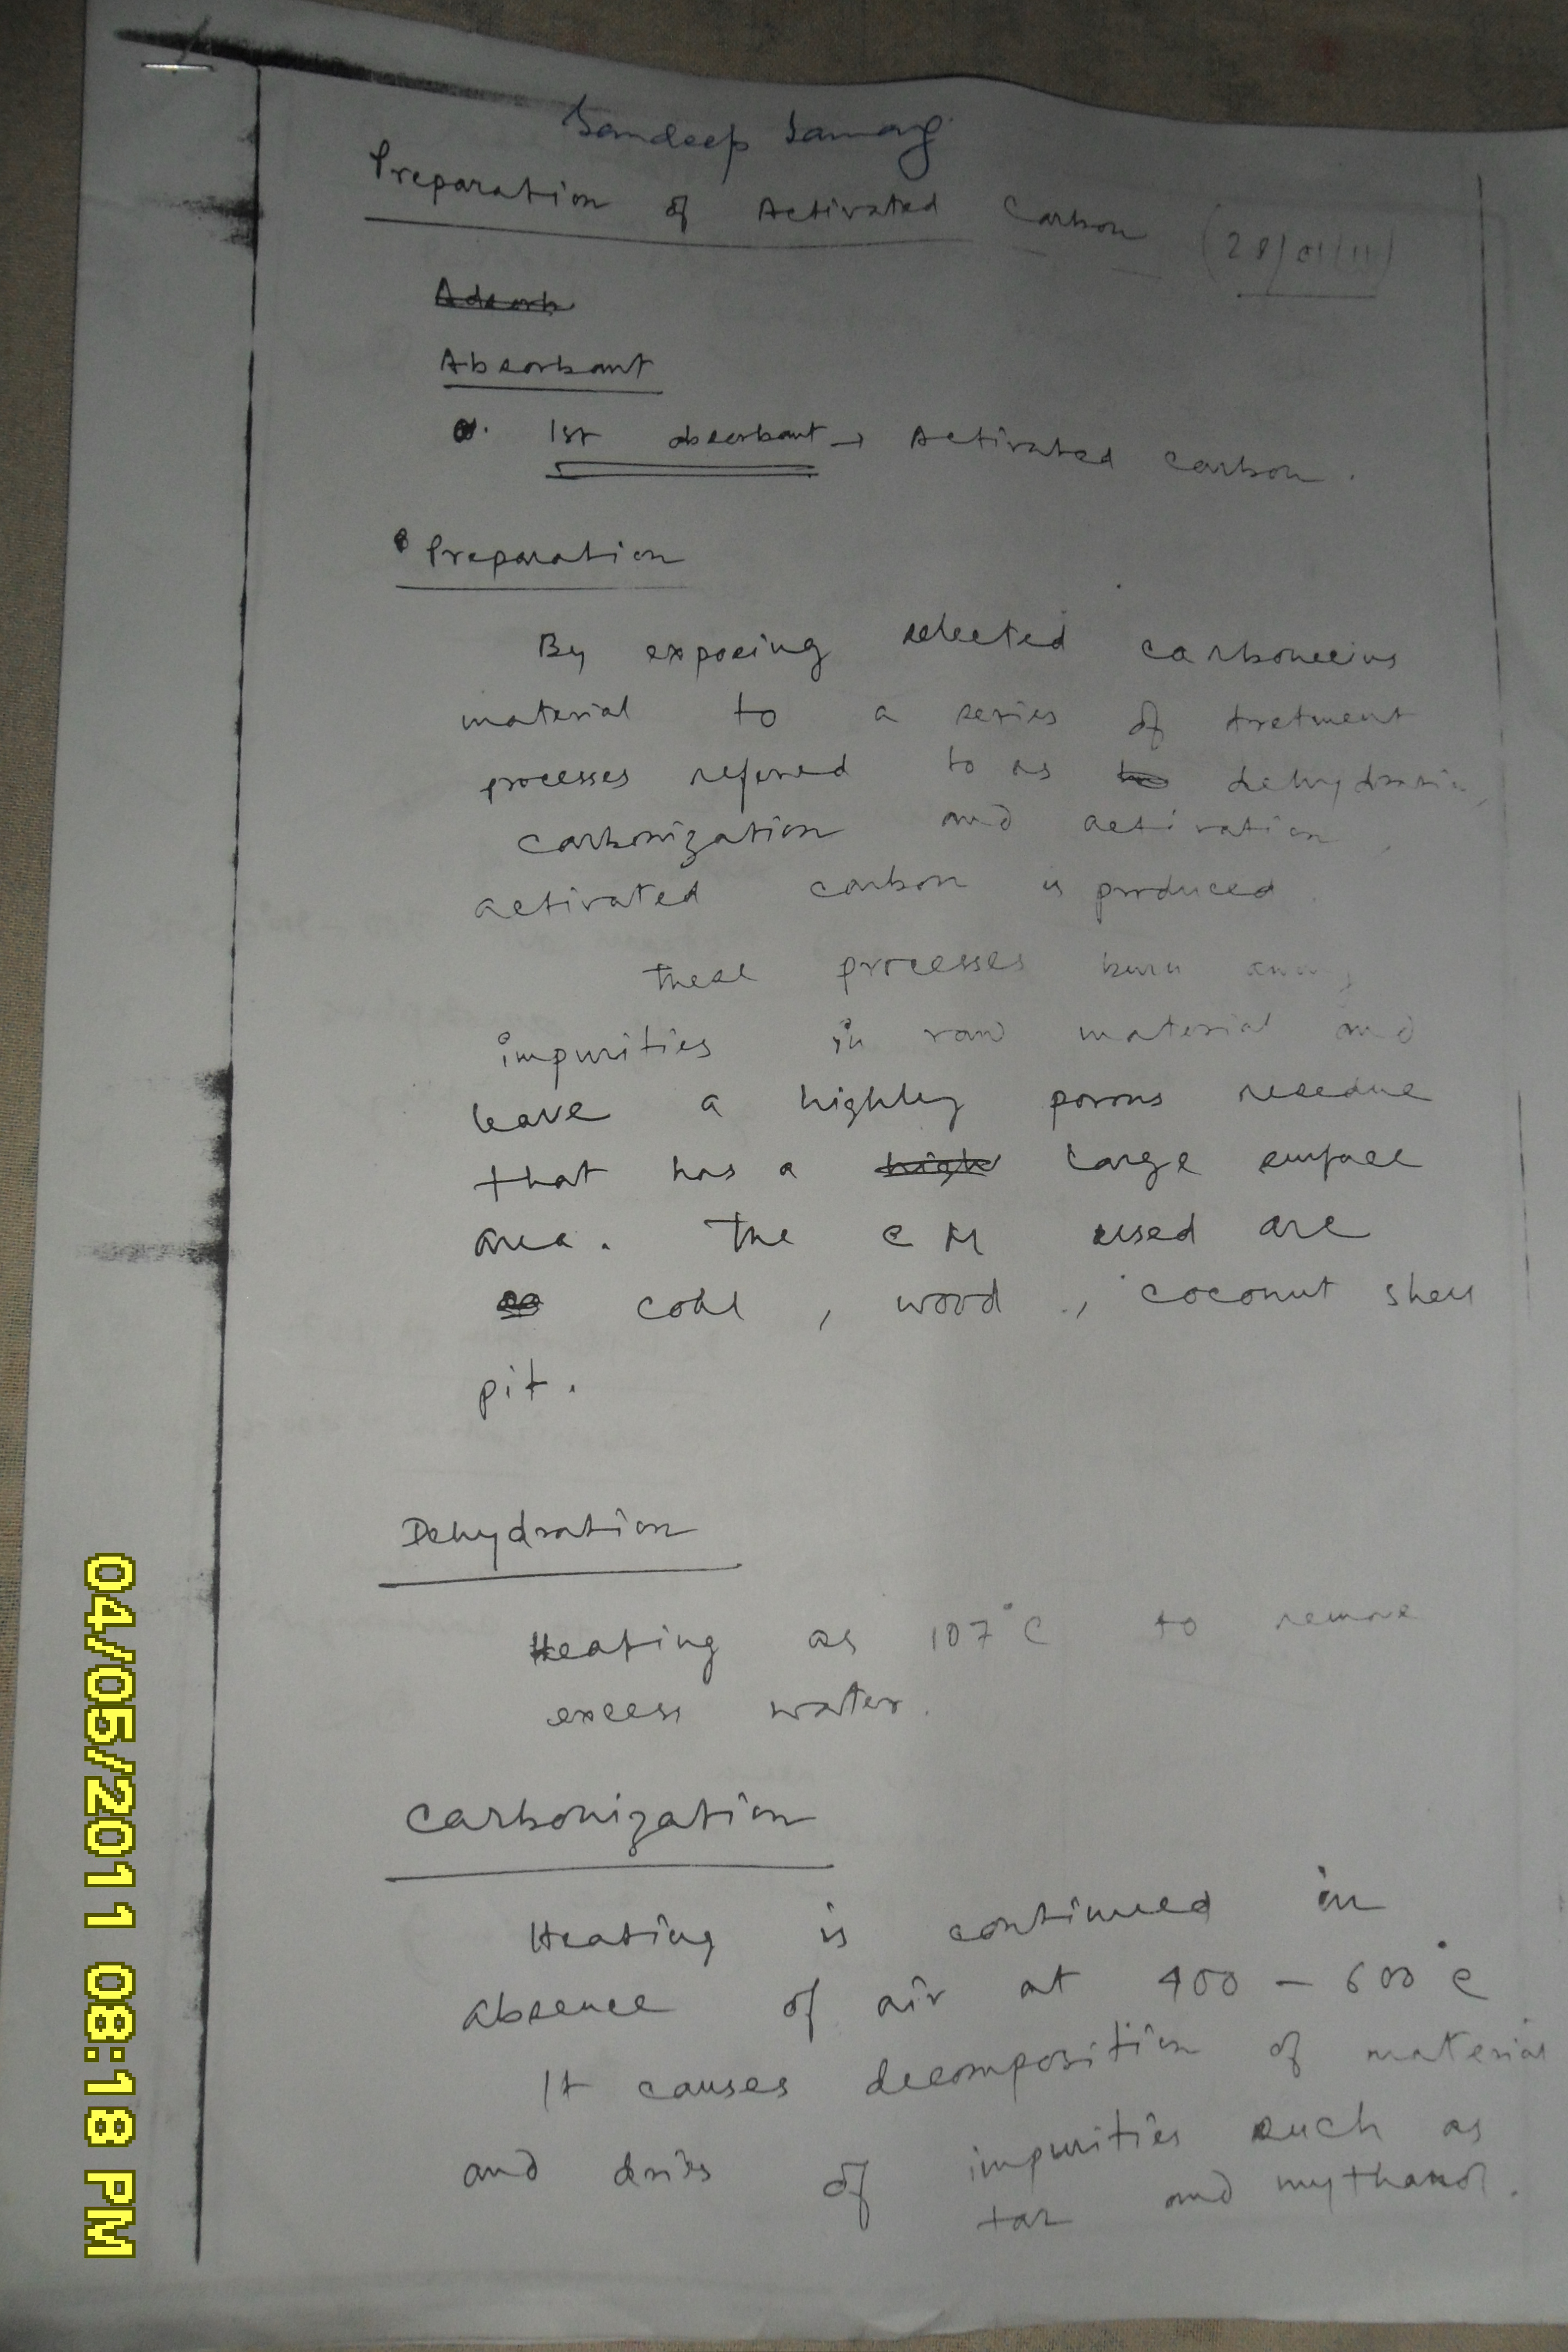 Sandeep
Preparation of Activated Carbon (28/01/11)
Adsorb
Absorbant
1st absorbant → Activated carbon.
Preparation
By exposing selected carbonecius
material to a series of tretment
processes refered to as dehydration,
carbonization and activation,
activated carbon is produced.
These processes burn away
impurities in raw material and
leave a highley porous resedue
that has a high large surface
area. The CM used are
coal, wood, coconut shell
pit.
Dehydration
Heating as 107°C to remove
excess water.
Carbonization
Heating is continued in
absence of air at 400 - 600°C
It causes decomposition of material
and dries of impurities such as
tar and mythanol.
04/05/2011 08:18 PM